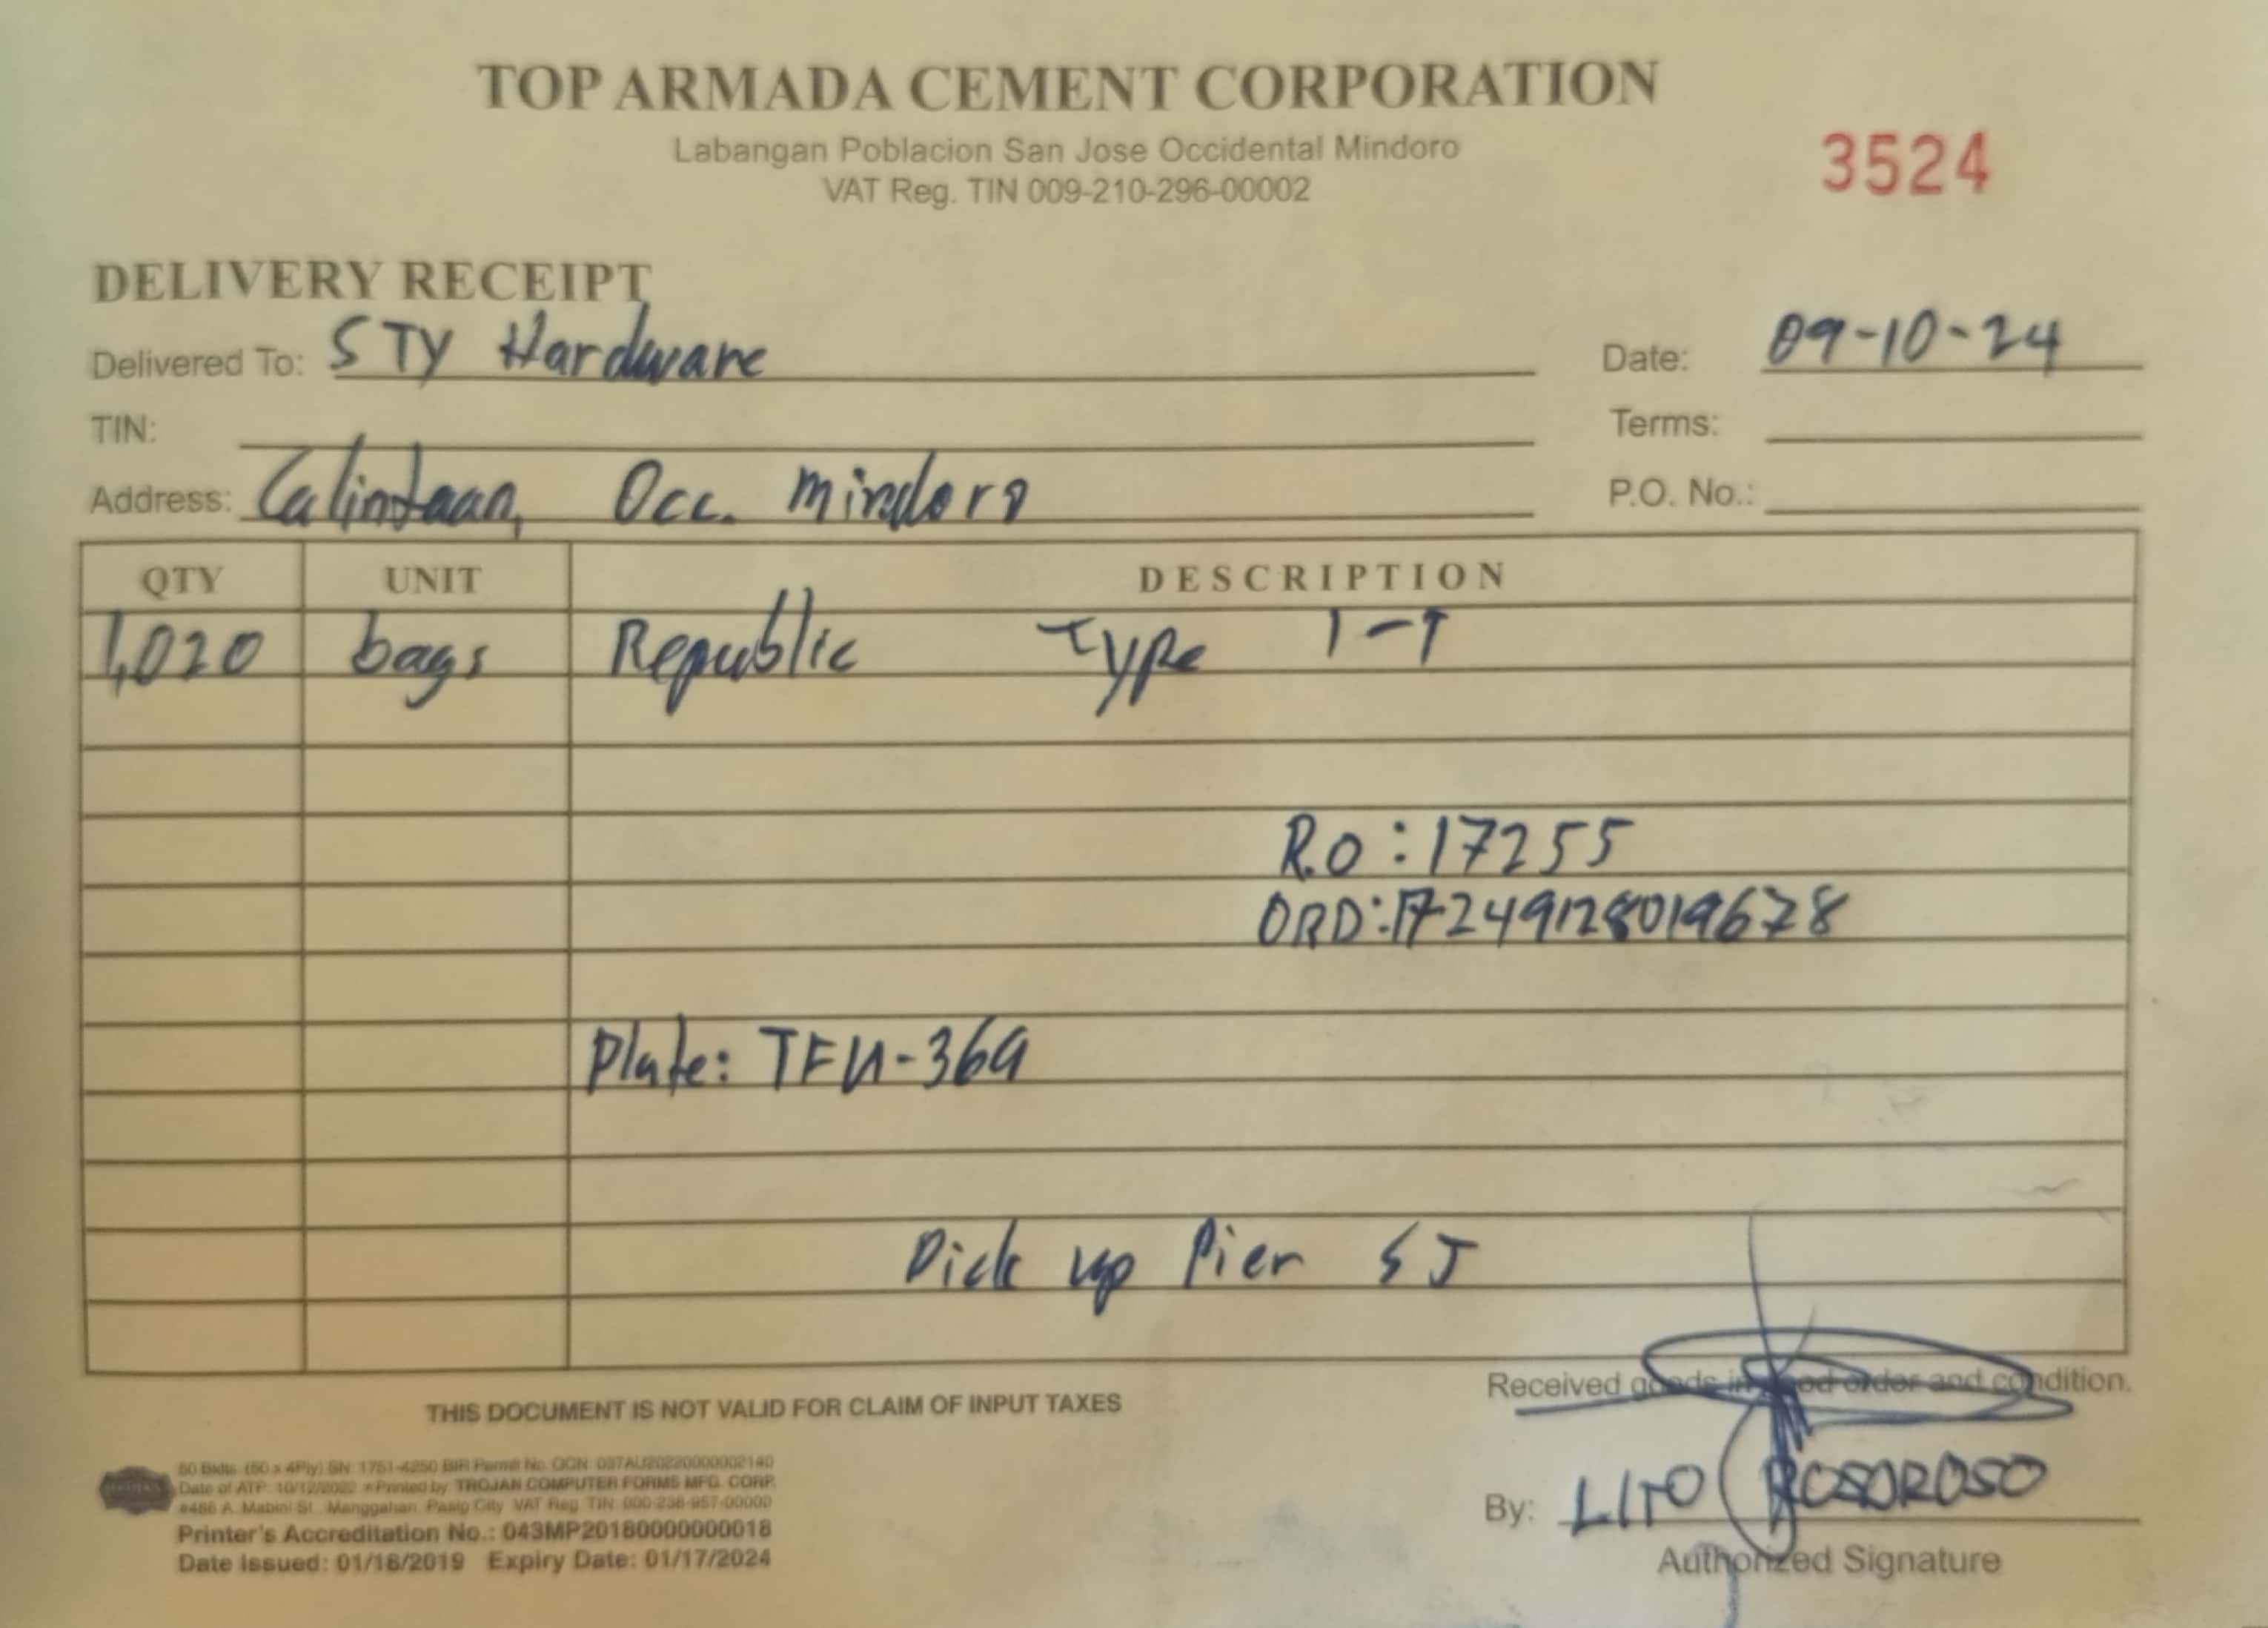 TOP ARMADA CEMENT CORPORATION
Labangan Poblacion San Jose Occidental Mindoro
VAT Reg. TIN 009-210-296-00002
3524
DELIVERY RECEIPT
Delivered To: STY Hardware
Date: 09-10-24
TIN:
Terms:
Address: Calintaan, Occ. Mindoro
P.O. No.:
QTY UNIT DESCRIPTION
1,020 bags Republic Type 1-T
R.O : 17255
ORD: 1724912801 9678
Plate: TFU-369
Pick up Pier SJ
Received goods in good order and condition.
THIS DOCUMENT IS NOT VALID FOR CLAIM OF INPUT TAXES
50 Bklts. (50 x 4Ply) SN: 1751-4250 BIR Permit No. OCN: 037AU20220000002140
Date of ATP: 10/12/2022 Printed by TROJAN COMPUTER FORMS MFG. CORP.
#486 A. Mabini St., Manggahan, Pasig City VAT Reg TIN: 000-238-957-00000
Printer's Accreditation No.: 043MP20180000000018
Date Issued: 01/18/2019 Expiry Date: 01/17/2024
By: LITO ROSOROSO
Authorized Signature